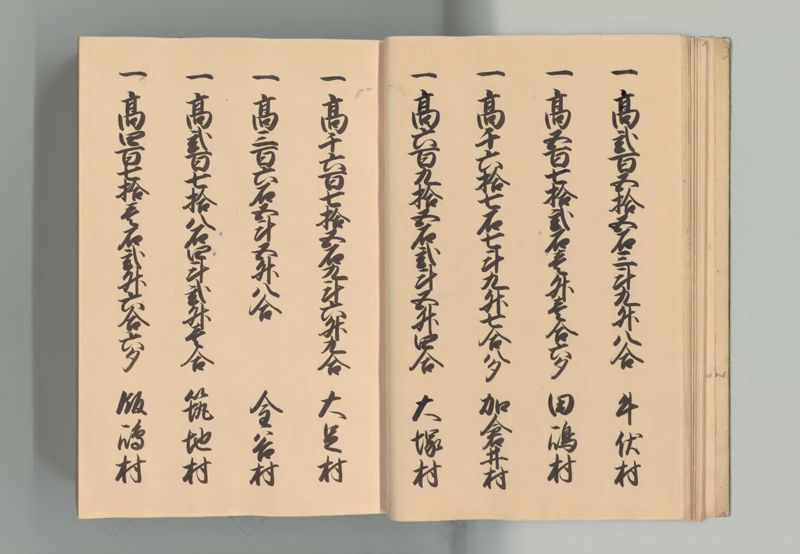 一 高弐百五拾五石三斗九升八合 牛伏村
一 高五百七拾弐石壱升壱合六夕 田嶋村
一 高千六拾七石七斗九升七合八夕 加倉井村
一 高六百九拾五石弐斗五升四合 大塚村
一 高千六百七拾五石九斗六升九合 大足村
一 高三百六石五斗五升八合 全谷村
一 高弐百七拾八石四斗弐升壱合 筑地村
一 高四百七拾壱石弐升六合六夕 飯嶋村